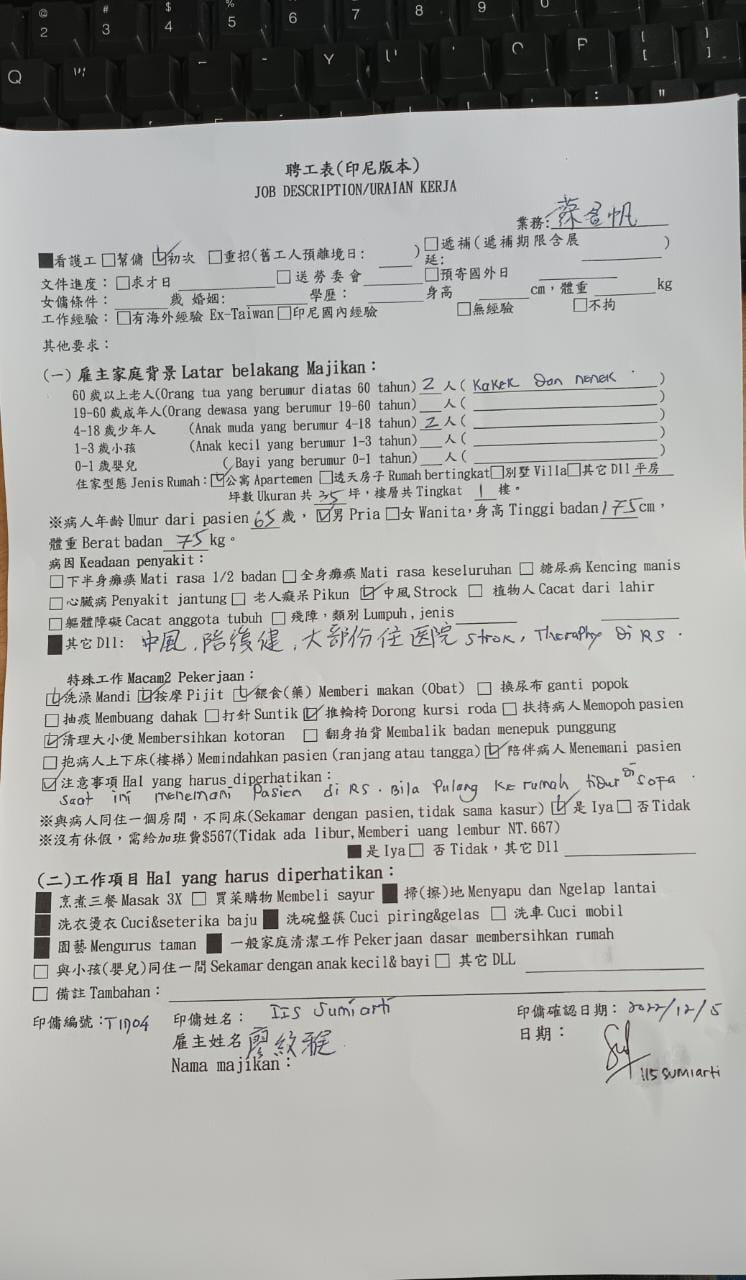 聘工表(印尼版本)
JOB DESCRIPTION/URAIAN KERJA
業務:
■看護工 □幫傭 ☑初次 □重招(舊工人預離境日: ) □遞補(遞補期限含展延: )
文件進度：□求才日 □送勞委會 □預寄國外日
女傭條件： 歲 婚姻: 學歷： 身高 cm，體重 kg
工作經驗：□有海外經驗 Ex-Taiwan □印尼國內經驗 □無經驗 □不拘
其他要求：
(一) 雇主家庭背景 Latar belakang Majikan：
60 歲以上老人(Orang tua yang berumur diatas 60 tahun) 2 人( Kakek dan nenek )
19-60 歲成年人(Orang dewasa yang berumur 19-60 tahun) 人( )
4-18 歲少年人 (Anak muda yang berumur 4-18 tahun) 2 人( )
1-3 歲小孩 (Anak kecil yang berumur 1-3 tahun) 人( )
0-1 歲嬰兒 ( Bayi yang berumur 0-1 tahun) 人( )
住家型態 Jenis Rumah：☑公寓 Apartemen □透天房子 Rumah bertingkat □別墅 Villa □其它 Dll 平房
坪數 Ukuran 共 35 坪，樓層共 Tingkat 1 樓。
※病人年齡 Umur dari pasien 65 歲， ☑男 Pria □女 Wanita，身高 Tinggi badan 175 cm，
體重 Berat badan 75 kg。
病因 Keadaan penyakit：
□下半身癱瘓 Mati rasa 1/2 badan □全身癱瘓 Mati rasa keseluruhan □ 糖尿病 Kencing manis
□心臟病 Penyakit jantung □ 老人癡呆 Pikun ☑ 中風 Strock □ 植物人 Cacat dari lahir
□軀體障礙 Cacat anggota tubuh □ 殘障，類別 Lumpuh, jenis
■其它 Dll: 中風，陪復健，大部份住医院 strok, Theraphy di RS.
特殊工作 Macam2 Pekerjaan：
☑洗澡 Mandi ☑按摩 Pijit ☑ 餵食(藥) Memberi makan (Obat) □ 換尿布 ganti popok
□抽痰 Membuang dahak □打針 Suntik ☑推輪椅 Dorong kursi roda □扶持病人 Memopoh pasien
☑清理大小便 Membersihkan kotoran □ 翻身拍背 Membalik badan menepuk punggung
□抱病人上下床(樓梯) Memindahkan pasien (ranjang atau tangga) ☑ 陪伴病人 Menemani pasien
☑注意事項 Hal yang harus diperhatikan：
saat ini menemani Pasien di RS. Bila Pulang Ke rumah tidur di sofa.
※與病人同住一個房間，不同床(Sekamar dengan pasien, tidak sama kasur) ☑ 是 Iya □ 否 Tidak
※沒有休假，需給加班費$567(Tidak ada libur, Memberi uang lembur NT. 667)
■是 Iya □ 否 Tidak，其它 Dll
(二)工作項目 Hal yang harus diperhatikan：
■ 烹煮三餐 Masak 3X □ 買菜購物 Membeli sayur ■ 掃(擦)地 Menyapu dan Ngelap lantai
■ 洗衣燙衣 Cuci&seterika baju ■ 洗碗盤筷 Cuci piring&gelas □ 洗車 Cuci mobil
■ 園藝 Mengurus taman ■ 一般家庭清潔工作 Pekerjaan dasar membersihkan rumah
□ 與小孩(嬰兒)同住一間 Sekamar dengan anak kecil& bayi □ 其它 DLL
□ 備註 Tambahan：
印傭編號: 印傭姓名： IIS Sumiarti 印傭確認日期：2022/12/5
雇主姓名 日期：
Nama majikan： IIS SUMIARTI